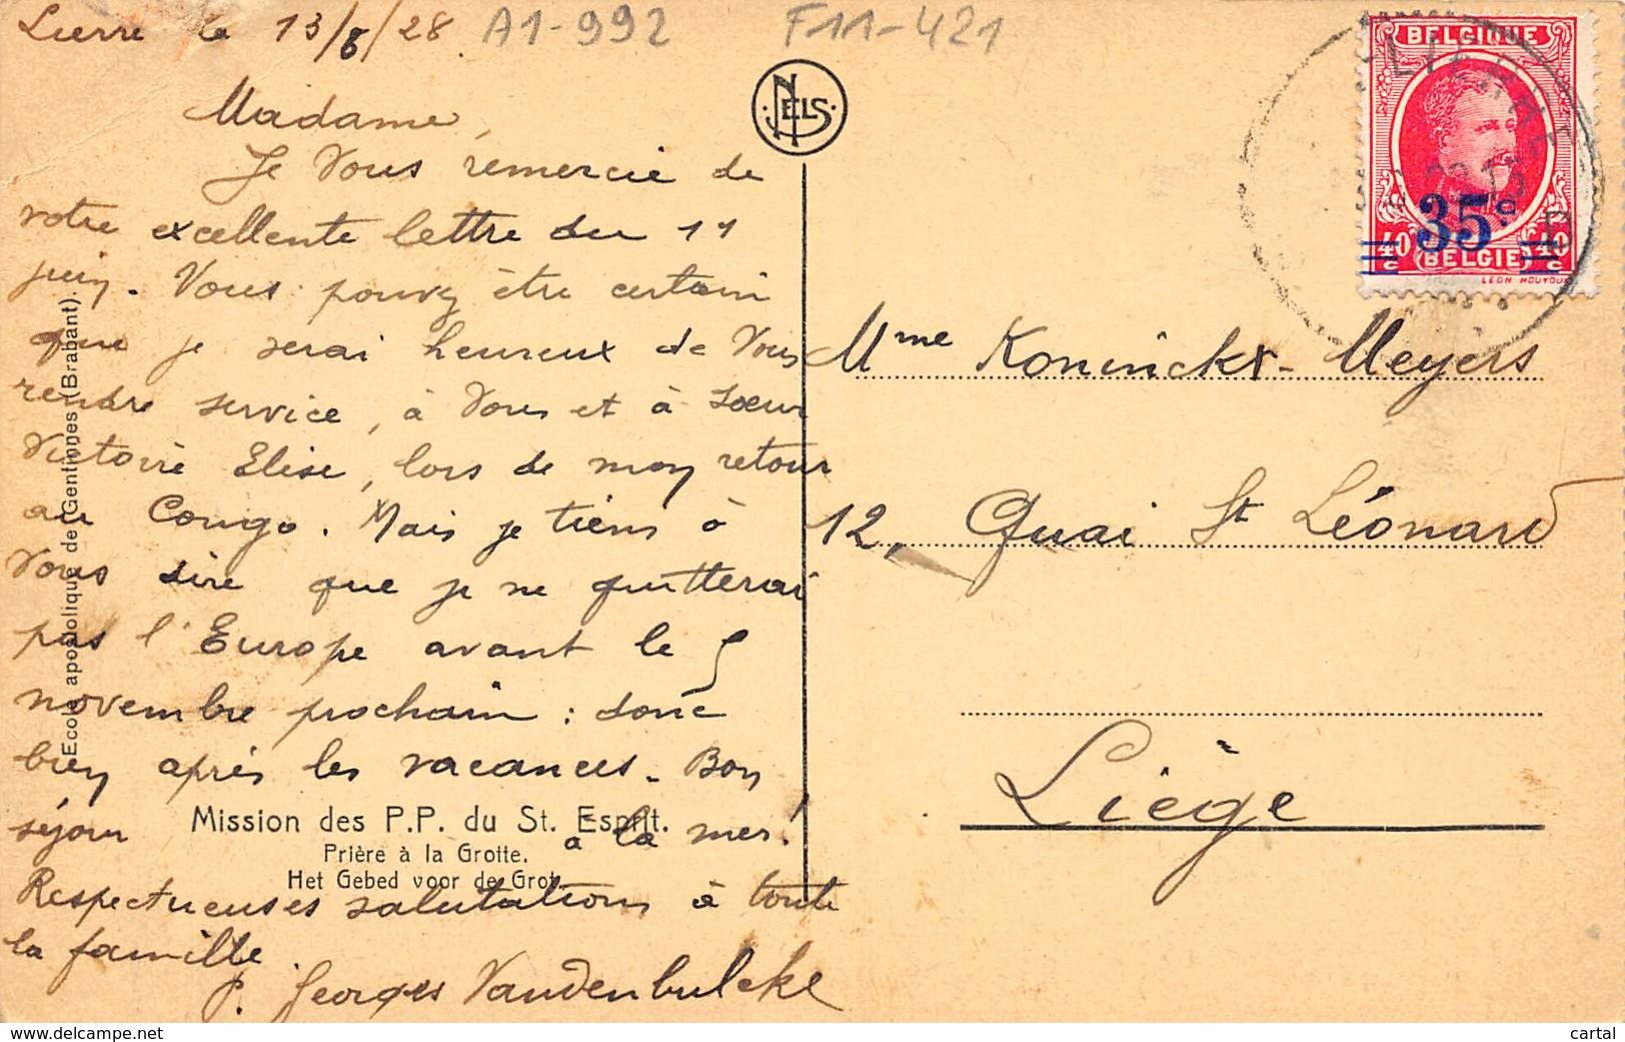 Lierre le 13/8/28.
A1-992
F11-421
NELS
Madame,
Je Vous remercie de
votre excellente lettre du 11
juin. Vous pouvez être certain
que je serai heureux de Vous
rendre service, à Vous et à Sœur
Victoire Elise, lors de mon retour
au Congo. Mais je tiens à
Vous dire que je ne quitterai
pas l'Europe avant le
novembre prochain : donc
bien après les vacances. Bon
séjour à la mer!
Respectueuses salutations à toute
la famille.
P. Georges Vandenbulcke
Ecole apostolique de Gentinnes (Brabant).
Mission des P.P. du St. Esprit.
Prière à la Grotte.
Het Gebed voor de Grot.
BELGIQUE
LIERRE
35c
40c 40c
(BELGIE)
LEON HOUYOUX
Mme Koninckx-Meyers
12, Quai St Léonard
Liège
www.delcampe.net
cartal